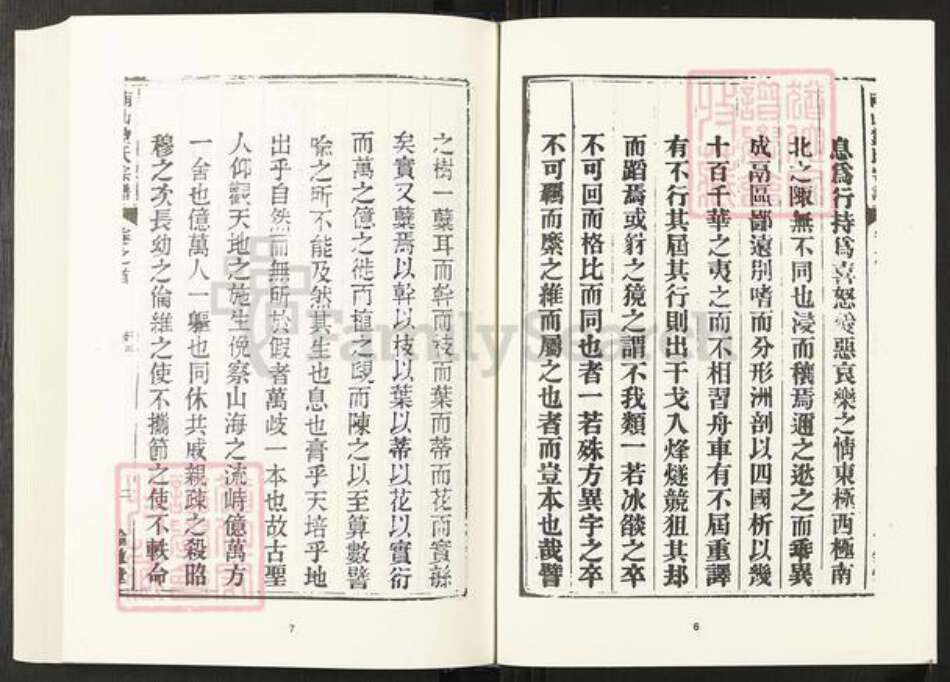 息爲行持爲喜怒愛惡哀樂之情東極西極南
北之陬無不同也浸而穰焉邇之逖之而乖異
成鬲區鄙遠別嗜而分形洲剖以四國析以幾
十百千華之夷之而不相習舟車有不屆重譯
有不行其屆其行則出干戈入烽燧競狙其刦
而蹈焉或豺之獍之謂不我類一若冰燄之卒
不可回而格比而同也者一若殊方異字之卒
不可羈而縻之維而屬之也者而豈本也哉譬
6
之樹一櫱耳而幹而枝而葉而蒂而花而實緜
矣實又櫱焉以幹以枝以葉以蒂以花以實衍
而萬之億之徙而植之覶而陳之以至算數譬
喻之所不能及然其生也息也膏乎天培乎地
出乎自然而無所於假者萬歧一本也故古聖
人仰觀天地之施生俛察山海之流峙億萬方
一舍也億萬人一軀也同休共戚親疎之殺昭
穆之次長幼之倫維之使不攜節之使不軼命
卷之首
二
7
FamilySearch